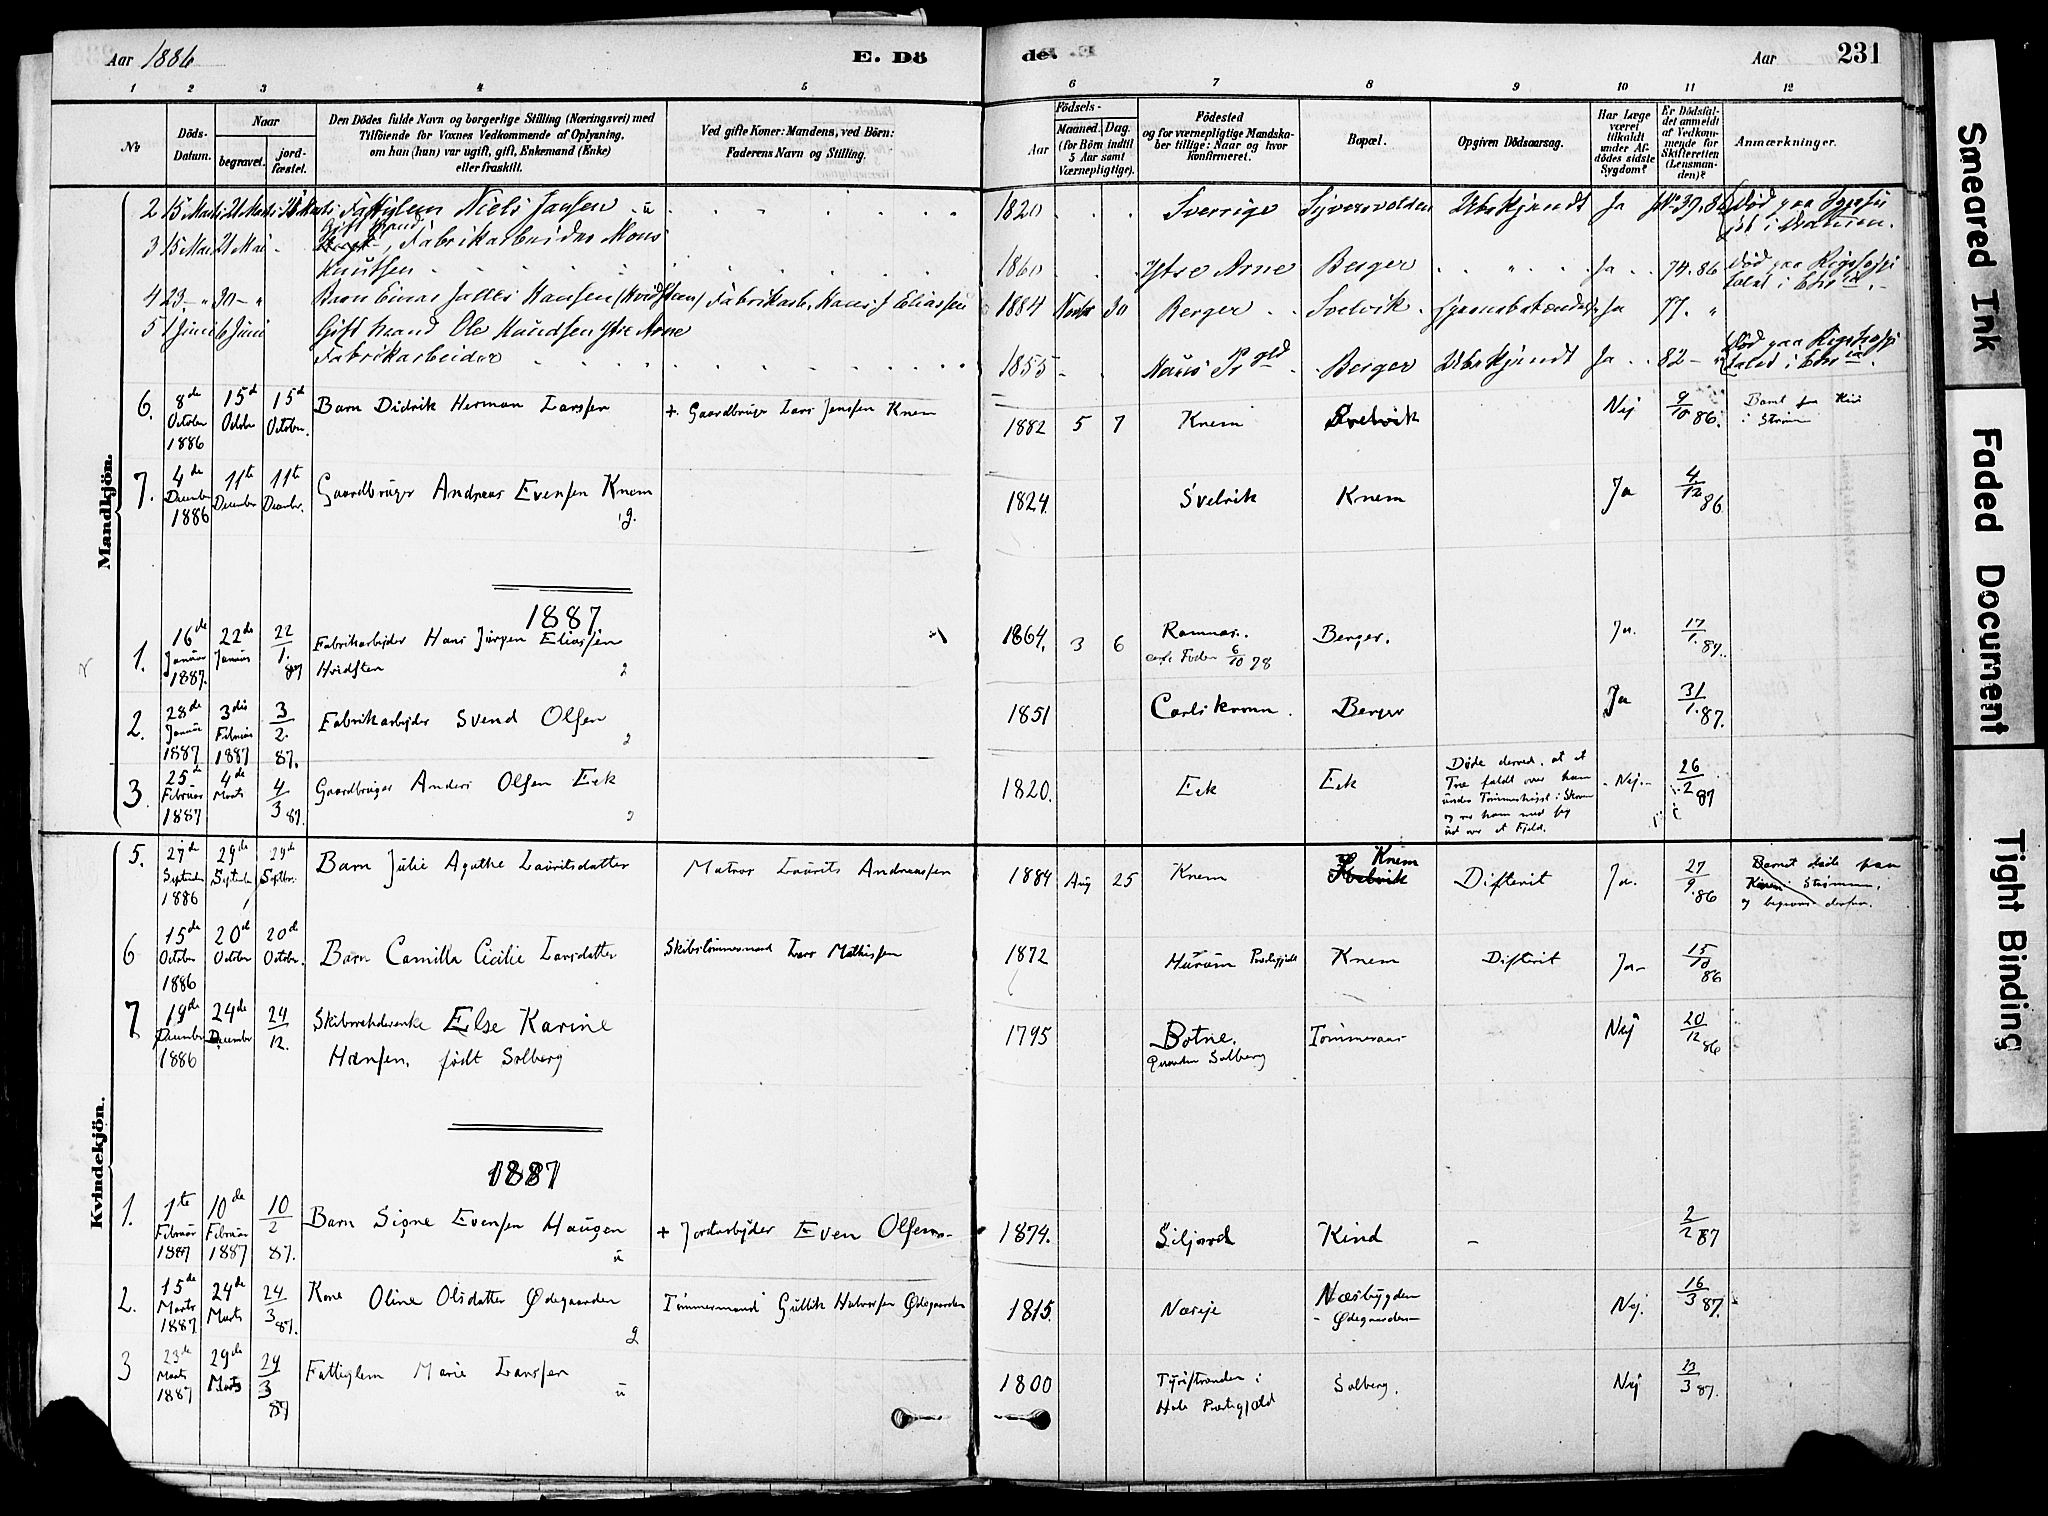 Aar 1886
E. Dö
de.
Aar
231
1 2 3 4 5 6 7 8 9 10 11 12
No
Döds-
Datum.
Naar
begravet.
jord-
fæstet.
Den Dödes fulde Navn og borgerlige Stilling (Næringsvei) med
Tilföiende for Voxnes Vedkommende af Oplysning,
om han (hun) var ugift, gift, Enkemand (Enke)
eller fraskilt.
Ved gifte Koner: Mandens, ved Börn:
Faderens Navn og Stilling.
Födsels-
Aar
Maaned.
Dag.
(for Börn indtil
5 Aar samt
Værnepligtige).
Födested
og for værnepligtige Mandska-
ber tillige: Naar og hvor
konfirmeret.
Bopæl.
Opgiven Dödsaarsag.
Har Læge
været
tilkaldt
under Af-
dödes sidste
Sygdom?
Er Dödsfal-
det anmeldt
af Vedkom-
mende for
Skifteretten
(Lensman-
den)?
Anmærkninger.
Mandkjön.
2 15 Marts 21 Marts Fattiglem Niels Jansen u 1820 Sverrige Sijversvolden Ubekjendt Ja No 37. 86
3 15 Mai 21 Mai Gift Mand, Fabrikarbeider Mons
Knutsen 1860 Ytre Arne Berger " Ja 74. 86 Död paa Rigshospi
talet i Chr ia.
4 23 - " 30 - " Barn Einar Hansen (Hvidsten) Fabrikarb. Hans J Eliassen 1884 Novbr 30 Berger Svelvik Ja 77. "
5 1 Juni 6 Juni Gift Mand Ole Knudsen Ytre Arne
Fabrikarbeider 1855 Haus Pr gld Berger Ubekjendt Ja 82 - " Död paa Rigshospi
talet i Chr ia.
6. 8de October 1886 15de October 15de October. Barn Didrik Herman Larssen + Gaardbruger Lars Jenssen Knem 1882 5 7 Knem Svelvik Nej 9/10 86.
i Strömm
7. 4de December 1886 11te December 11te December. Gaardbruger Andreas Evensen Knem g. 1824. Svelvik Knem Ja 4/12 86
1887.
1. 16de Januar 1887. 22de Januar 22/1. 87 Fabrikarbejder Hans Jörgen Eliassen
Hvidsten 1864. 3 6 Ramnæs. 6/10 78 Berger. Ja. 17/1. 87.
2. 28de Januar 1887 3die Februar 1887 3/2. 87. Fabrikarbejder Svend Olsen 1851 Carlskrona. Berger Ja 31/1. 87.
3. 25de Februar 1887 4de Marts 4/3 87. Gaardbruger Anders Olsen Eek 1820. Eek Eek Döde derved, at et
Træ faldt over ham
under Tömmerhugst i Skoven
og rev ham med sig
ud over et Fjeld. Nej 26/2 87
Kvindekjön.
5. 27de September 1886 29de September 29de Septbr. Barn Julie Agathe Lauritsdatter Matros Laurits Andreassen 1884 Aug 25 Knem Svelvik Knem Difterit Ja. 27/9. 86 Barnet döde paa
Knem Strömm,
og begraves derfra.
6 15de October 1886 20de October 20de October. Barn Camilla Cicilie Larsdatter Skibstömmermand Lars Mathissen 1872 Hurum Præstegjeld Knem Difterit Ja 15/10 86
7 19de December 1886 24de December 24/12. Skibsrederenke Else Karine
Hansen, född Solberg 1795 Botne.
Solberg Tömmeraas Nej 20/12 86
1887
1. 1te Februar 1887 10de Februar 1887 10/2 87. Barn Signe Evensen Haugen u + Jordarbejder Even Olsen 1874. Siljord Kind - 2/2 87
2. 15de Marts 1887 24de Marts 24/3 87. Kone Oline Olsdatter Ödegaarden g Tömmermand Gullik Halvorsen Ödegaarden 1815. Næsbygden
Ödegaarden Nej. 16/3 87.
3 23de Marts 1887 29de Marts 29/3 87 Fattiglem Marie Larssen u 1800 Tyristranden i
Hole Præstegjæld Solberg. Nej 23/3 87.
Smeared Ink
Faded Document
Tight Binding